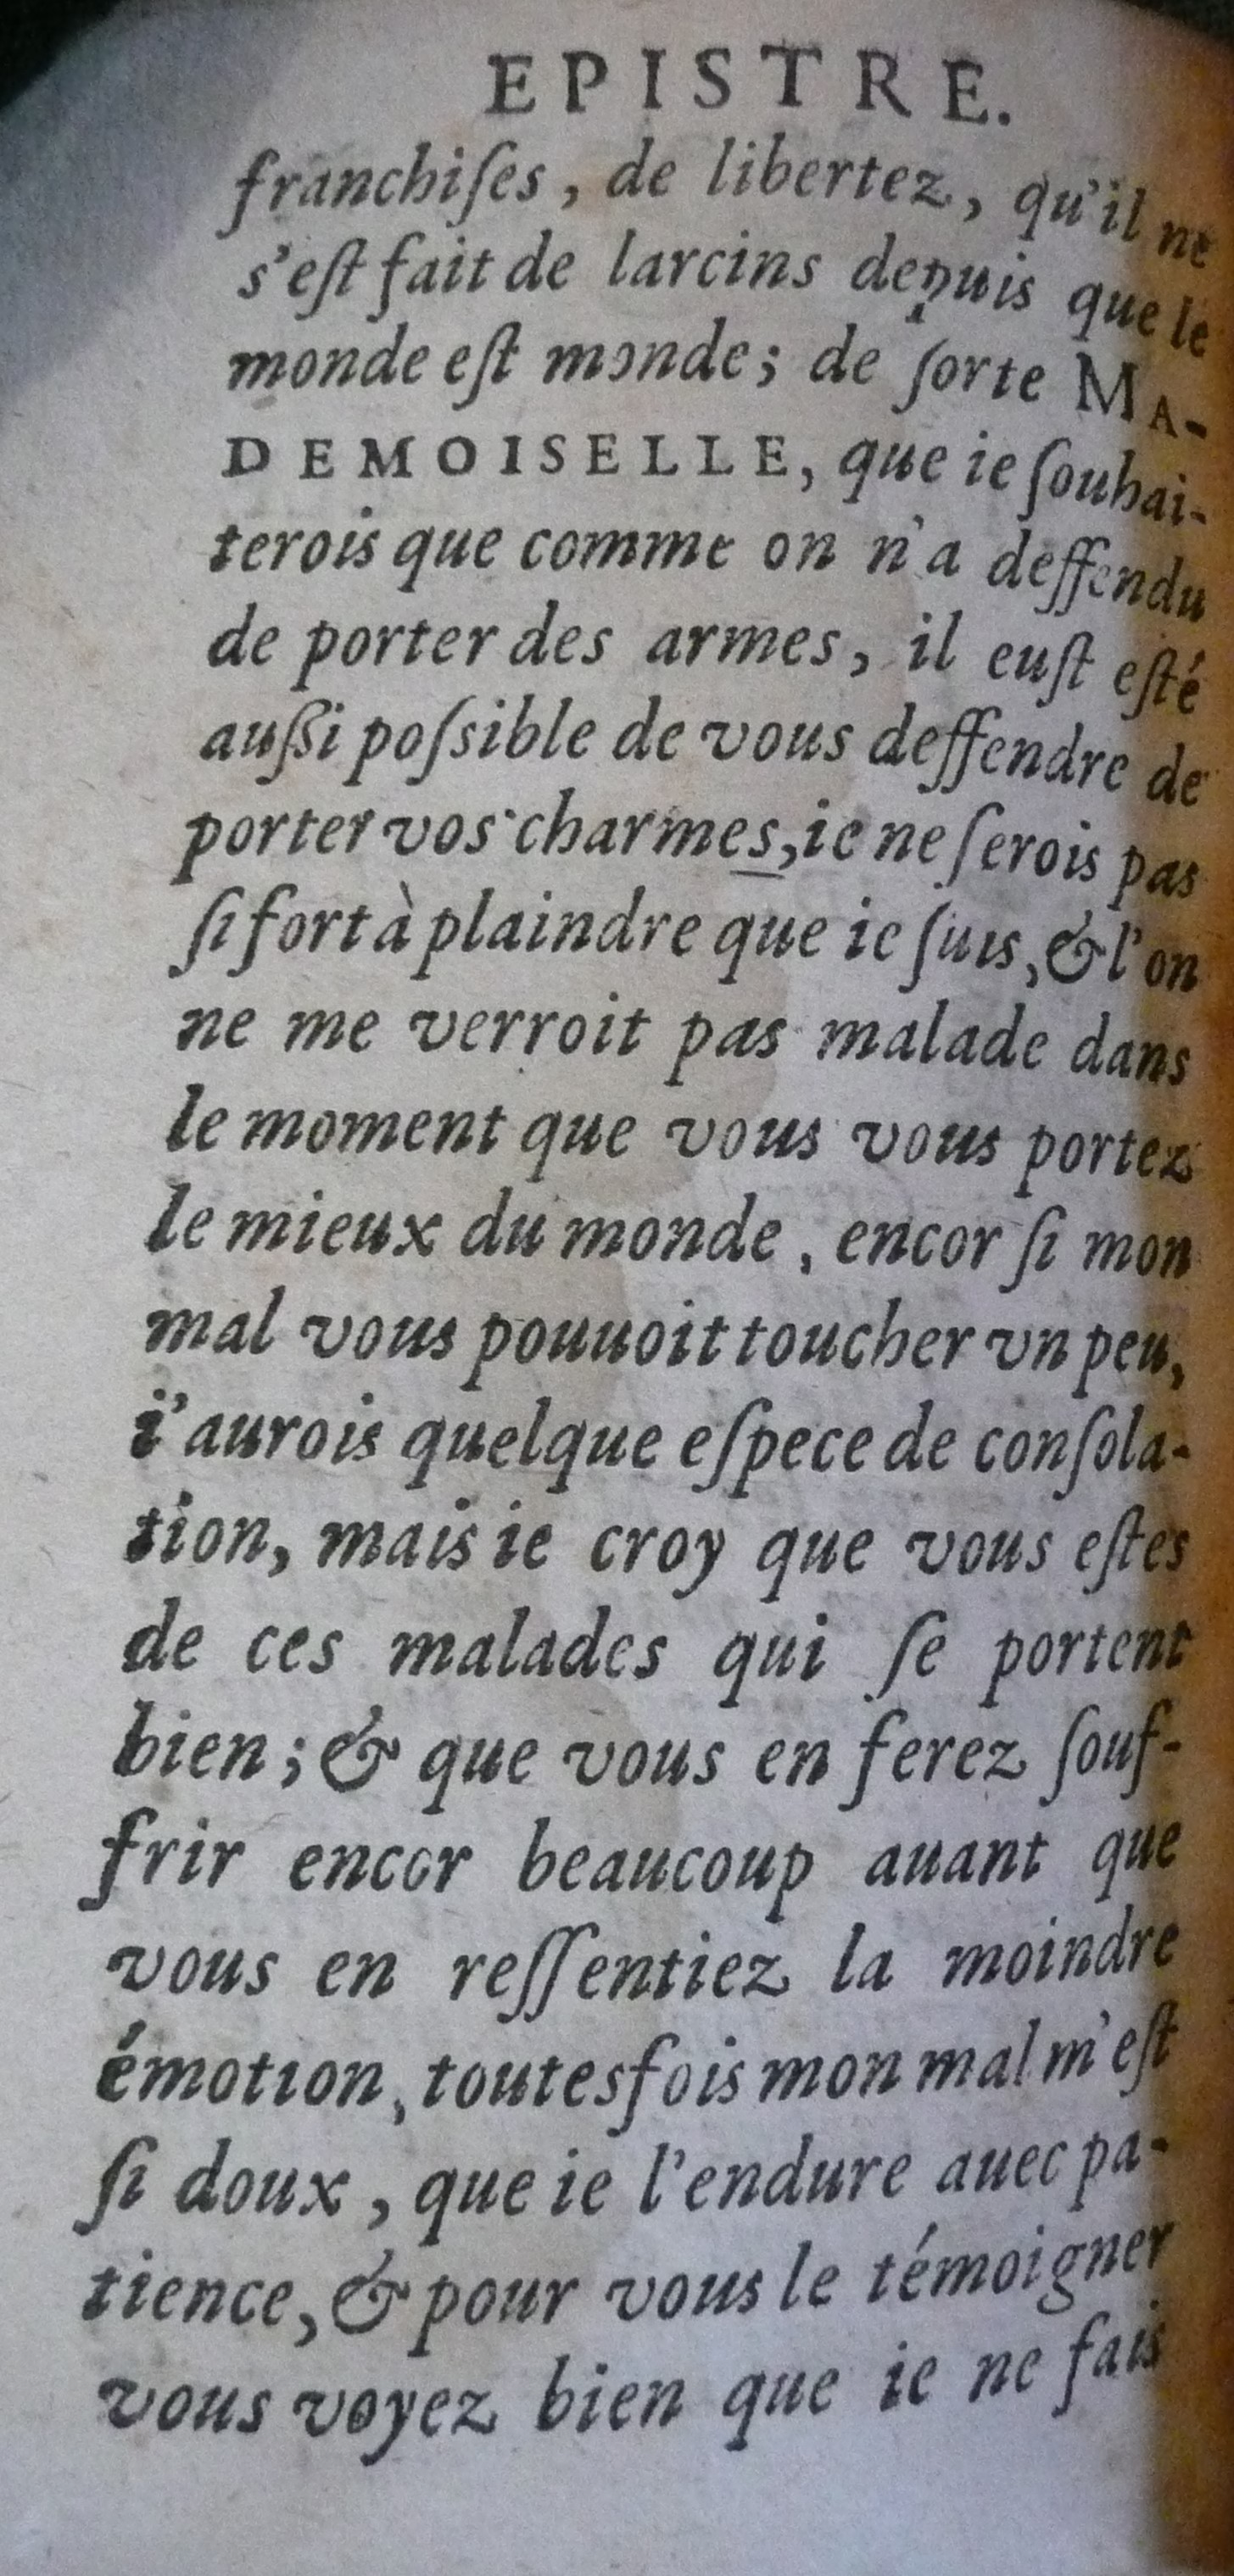 EPISTRE.
franchiſes, de libertez, qu'il ne
s'eſt fait de larcins depuis que le
monde eſt monde; de ſorte MA-
DEMOISELLE, que ie ſouhai-
terois que comme on n'a deffendu
de porter des armes, il euſt eſté
auſſi poſsible de vous deffendre de
porter vos charmes, ie ne ſerois pas
ſi fort à plaindre que ie ſuis, & l'on
ne me verroit pas malade dans
le moment que vous vous portez
le mieux du monde, encor ſi mon
mal vous pouuoit toucher vn peu,
i'aurois quelque eſpece de conſola-
tion, mais ie croy que vous eſtes
de ces malades qui ſe portent
bien; & que vous en ferez ſouf-
frir encor beaucoup auant que
vous en reſſentiez la moindre
émotion, toutesfois mon mal m'eſt
ſi doux, que ie l'endure auec pa-
tience, & pour vous le témoigner
vous voyez bien que ie ne fais